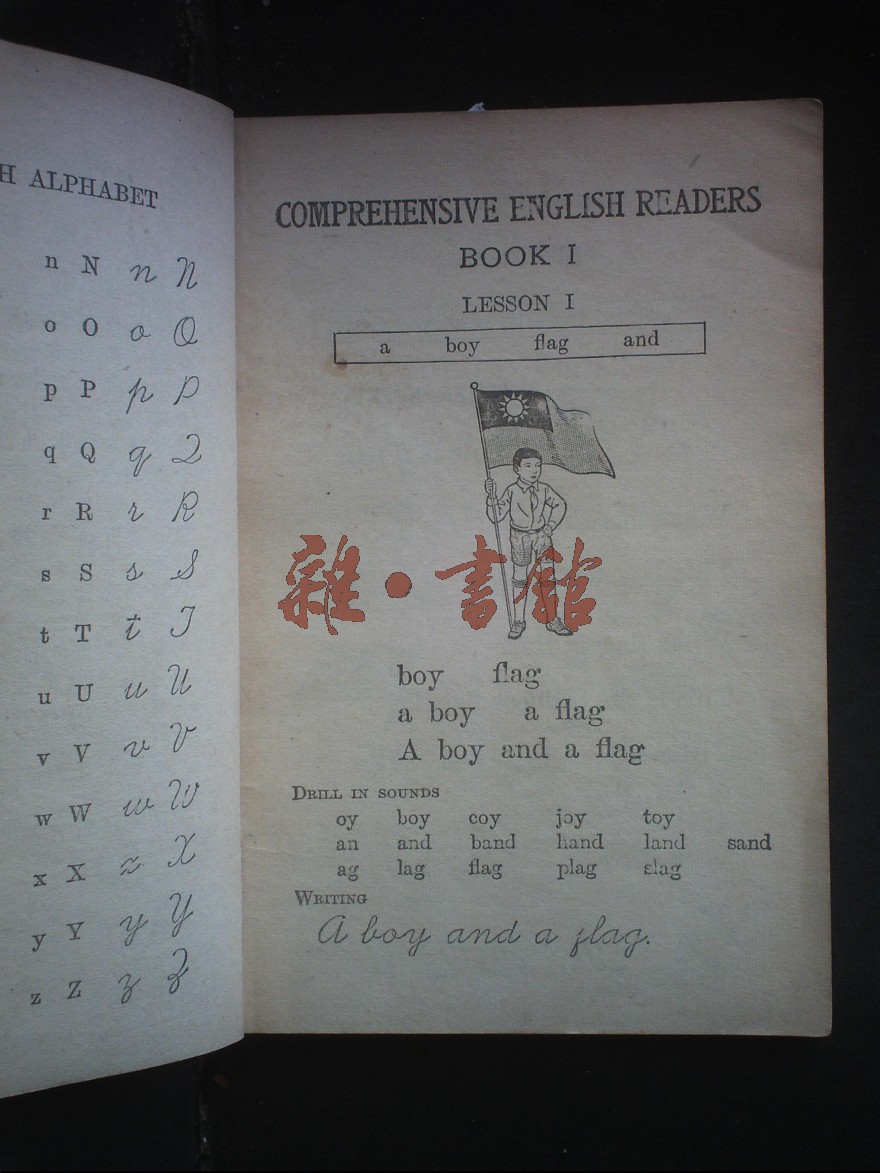 H ALPHABET
n N n N
o O o O
p P p P
q Q q Q
r R r R
s S s S
t T t T
u U u U
v V v V
w W w W
x X x X
y Y y Y
z Z z Z
COMPREHENSIVE ENGLISH READERS
BOOK I
LESSON I
a boy flag and
雜·書館
boy flag
a boy a flag
A boy and a flag
DRILL IN SOUNDS
oy boy coy joy toy
an and band hand land sand
ag lag flag plag slag
WRITING
A boy and a flag.